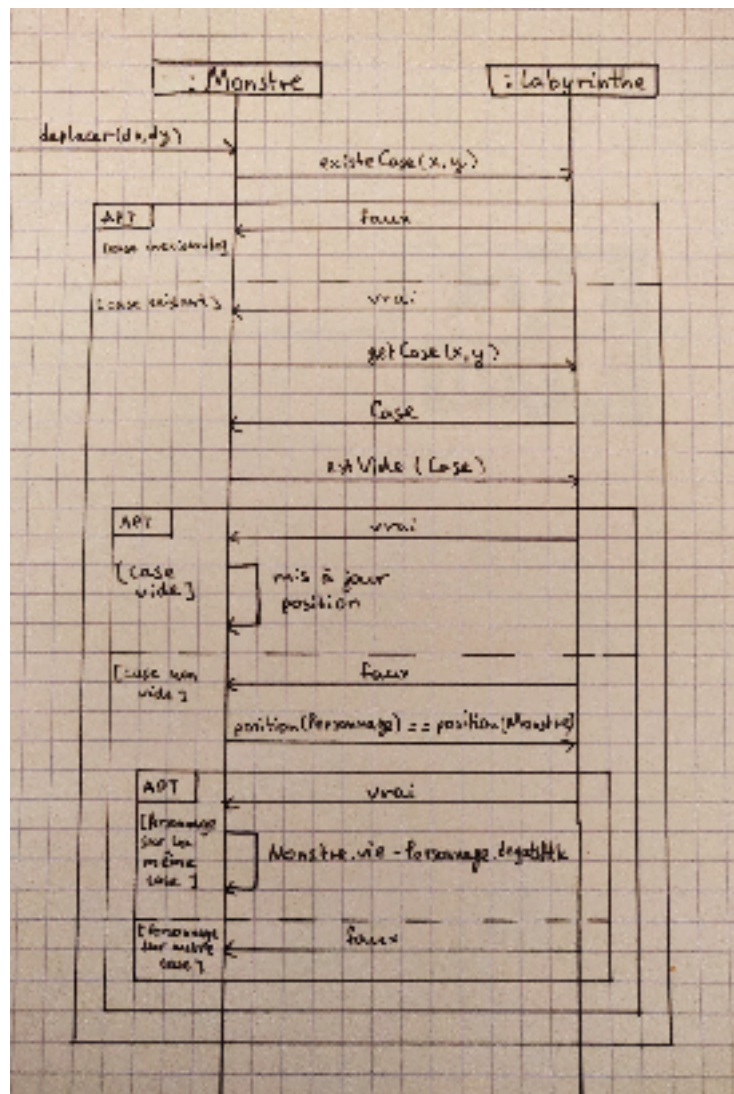 : Monstre
: Labyrinthe
deplacer(dx,dy)
existeCase(x,y)
faux
[case inexistante]
vrai
[case existant]
getCase(x,y)
Case
estVide (Case)
vrai
[case
vide]
mis à jour
position
faux
[case non
vide]
position(Personnage) == position(Monstre)
vrai
[Personnage
sur la
même
case]
Monstre.vie - Personnage.degatsAtk
faux
[Personnage
sur autre
case]